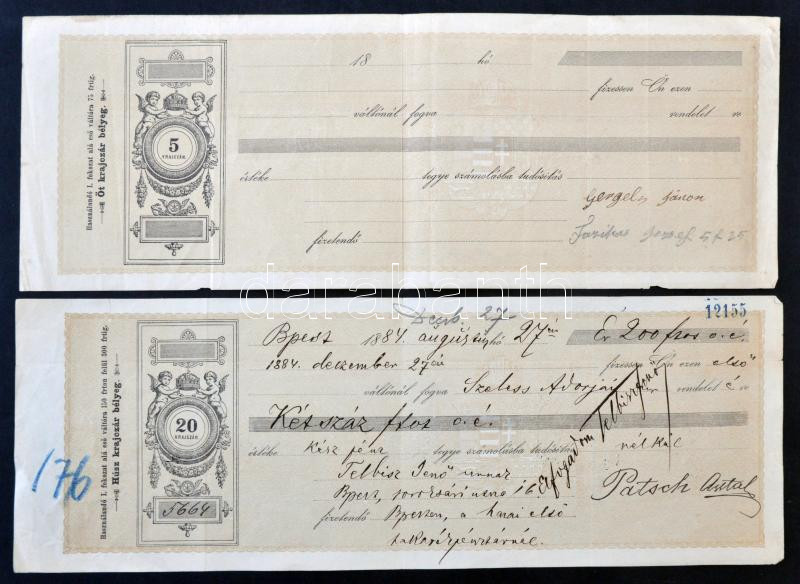 Használandó I. fokozat alá eső váltóra 75 frtig.
Öt krajczár bélyeg.
5
KRAJCZÁR
18 hó
fizessen Ön ezen
váltónál fogva rendelet re
értéke tegye számolásba tudósítás
Gergely János
fizetendő Farkas József 5 f 25
darabanth
Decb. 27
12155
Bpest 1884 augusztus hó 27én Ér 200 frtot o.é.
1884 deczember 27én fizessen Ön ezen első
váltónál fogva Szeless Adorján rendelet e re
Kétszáz frtot o.é.
értéke kész pénz tegye számolásba tudósítás nélkül
Telbisz Jenő úrnak
Bpest, soroksári utcza 16
Elfogadom Telbisz Jenő
Patsch Antal
fizetendő Bpesten, a hazai első
takarékpénztárnál.
Használandó I. fokozat alá eső váltóra 150 frton felül 300 frtig.
Húsz krajczár bélyeg.
20
KRAJCZÁR
5664
176